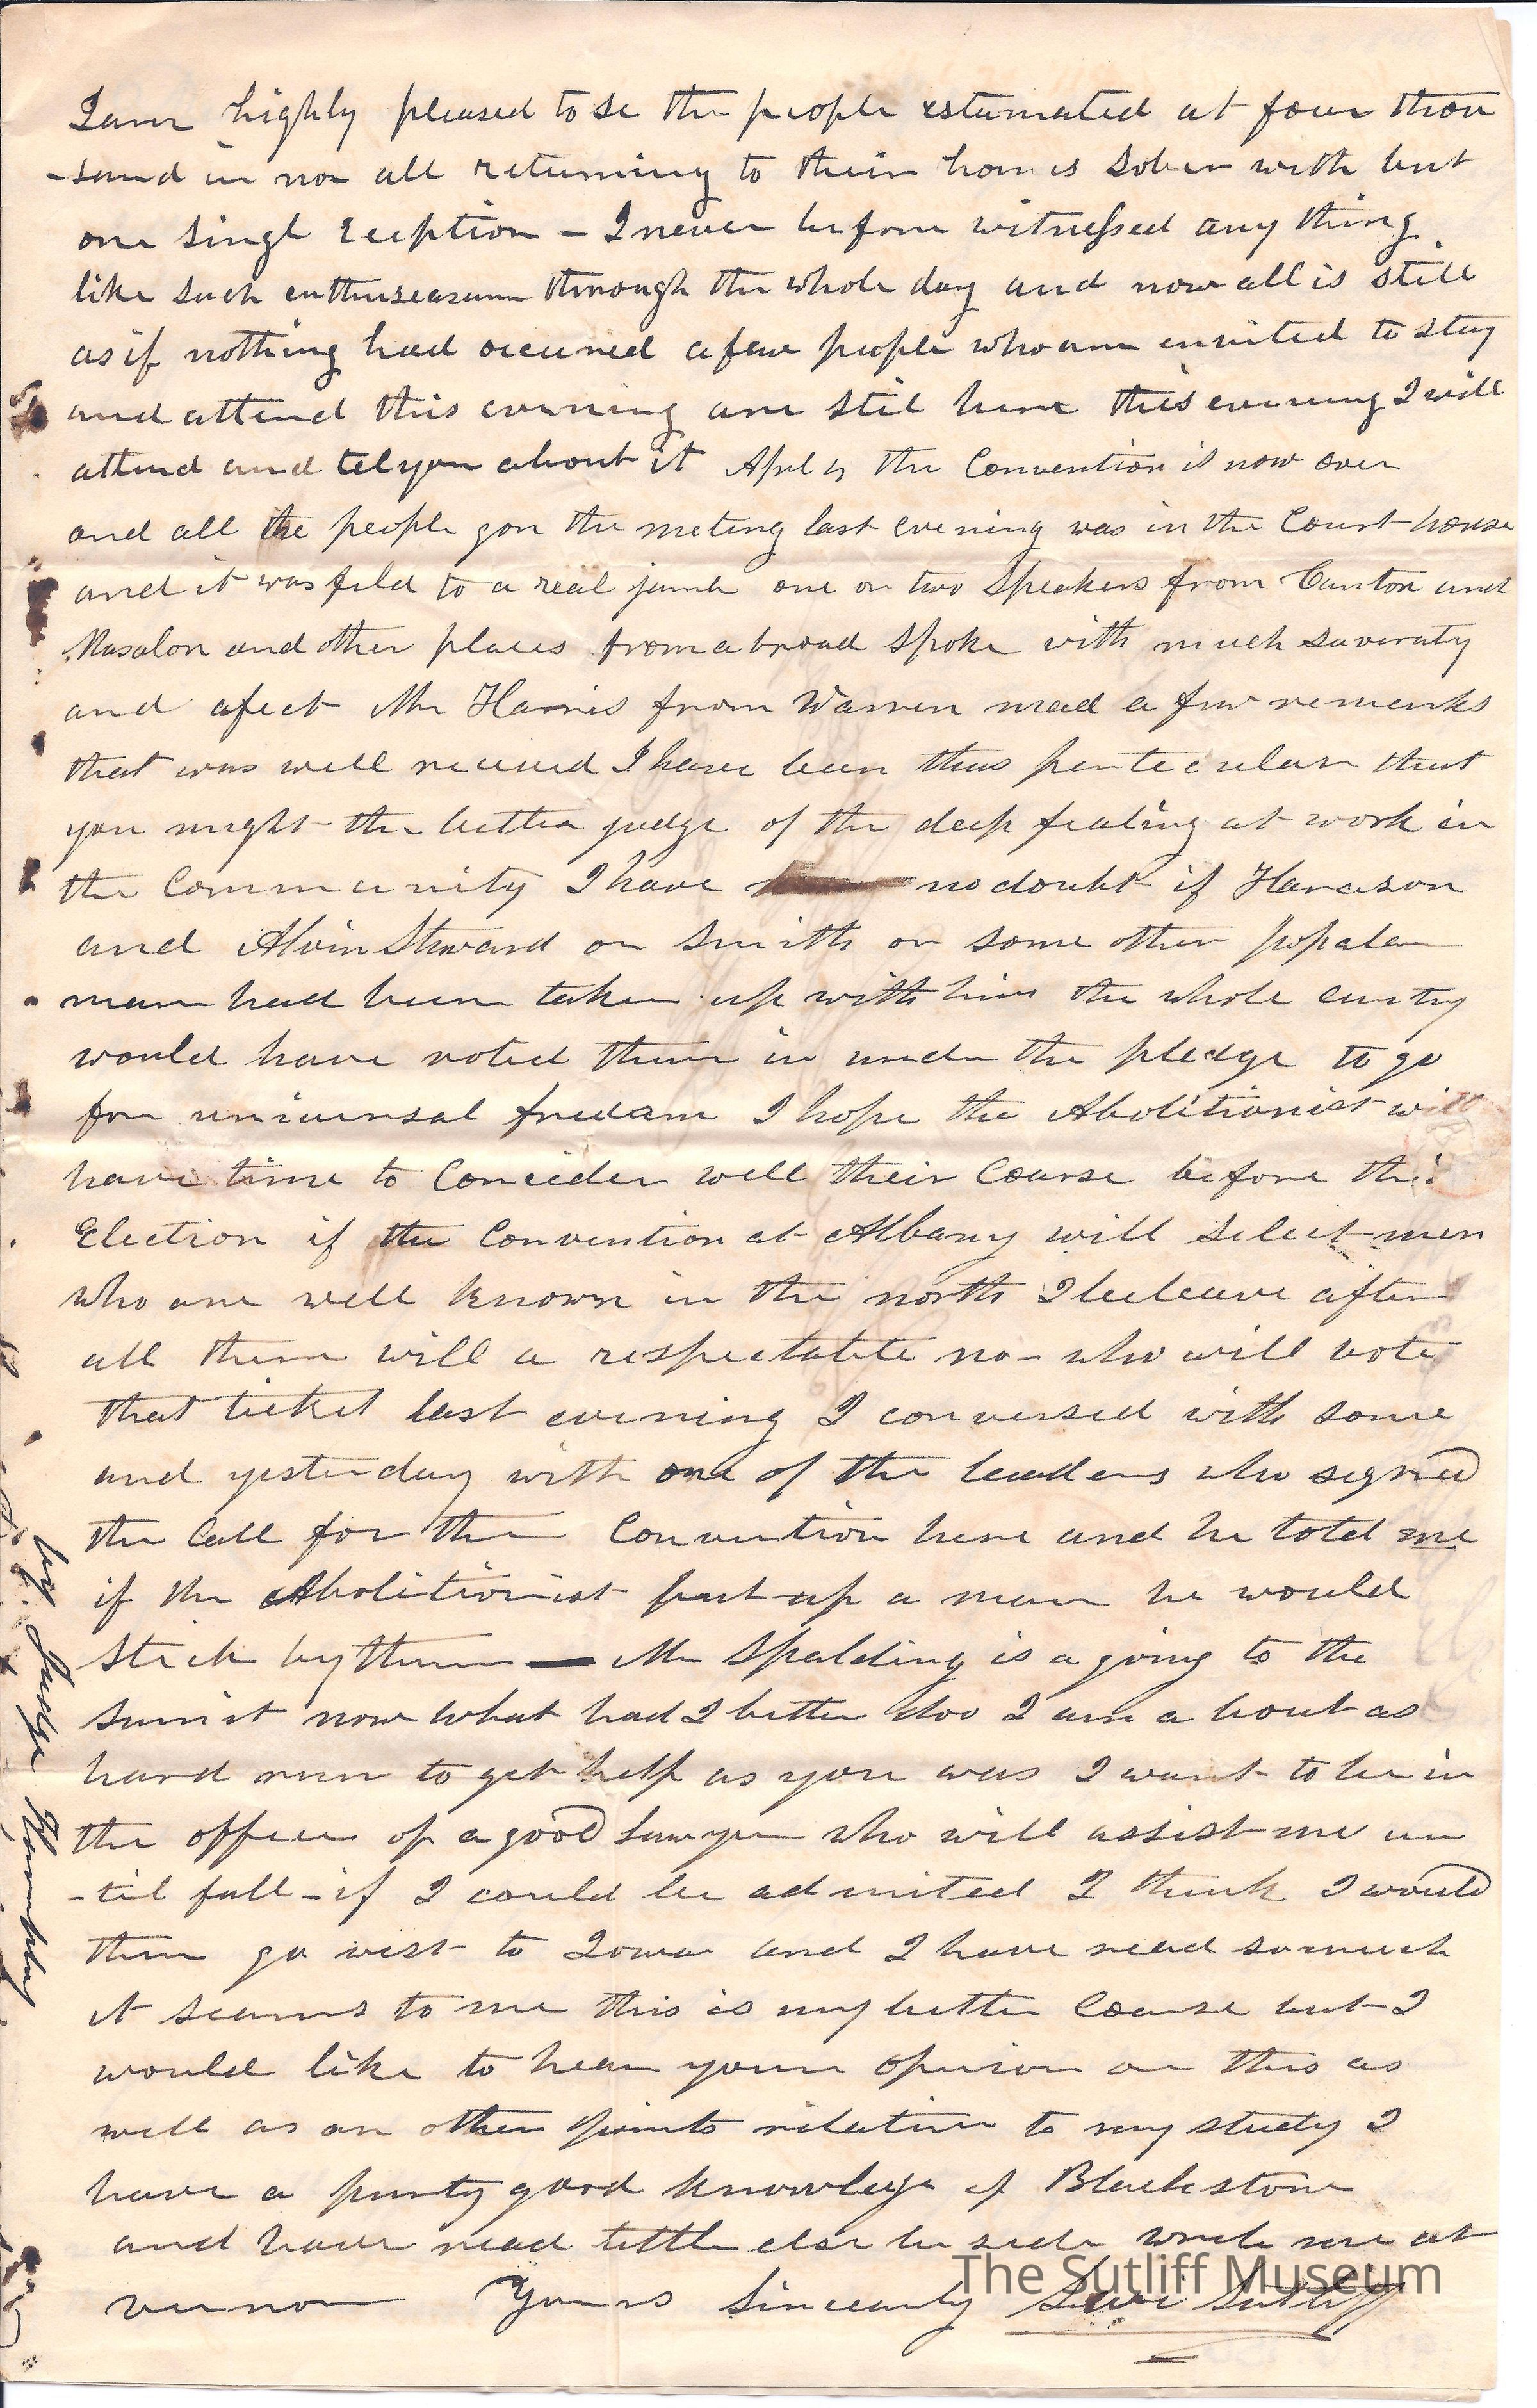 I am highly pleased to se the people estumated at four thou
-sand in no all returning to their homes sober with but
one singl eception - I never before witnessed any thing
like such enthuseasum through the whole day and now all is still
as if nothing had occured a few people who are invited to stay
and attend this evening are stil here this evening I will
attend and tel you about it Apl the Convention is now over
and all the people gon the meting last evening was in the Court house
and it was fild to a real jamb one or two Speakers from Canton and
Masalon and other places from a broad spoke with much saveraty
and afect Mr Harris from Warren mad a few remarks
that was well received I have been thus perticular that
you might the better judge of the deep fealing at work in
the Community I have no doubt if Harason
and Alvin Steward or Smith or some other populer
man had been taken up with him the whole cuntry
would have voted them in under the pledge to go
for universal fredam I hope the Abolitionist will
have time to Concider well their Course before the
Election if the Convention at Albany will select men
who are well known in the north I beleave after
all there will a respectable no - who will vote
that ticket last evening I conversed with some
and yesterday with one of the leaders who signed
the Call for the Convention here and he told me
if the Abolitionist put up a man he would
stick by them — Mr Spalding is a going to the
sumit now what had I better doo I am a bout as
hard run to get help as you was I want to be in
the office of a good lawyer who will assist me un
-til fall - if I could be admited I think I would
then go west to Iowa and I have read so much
it seams to me this is my better Course but I
would like to hear your opinion on this as
well as on other points relative to my study I
have a purty good knowlege of Blackstone
and have read little else be side write me at
vernon Yours Sincearly Levi Sutliff
by Judge
The Sutliff Museum